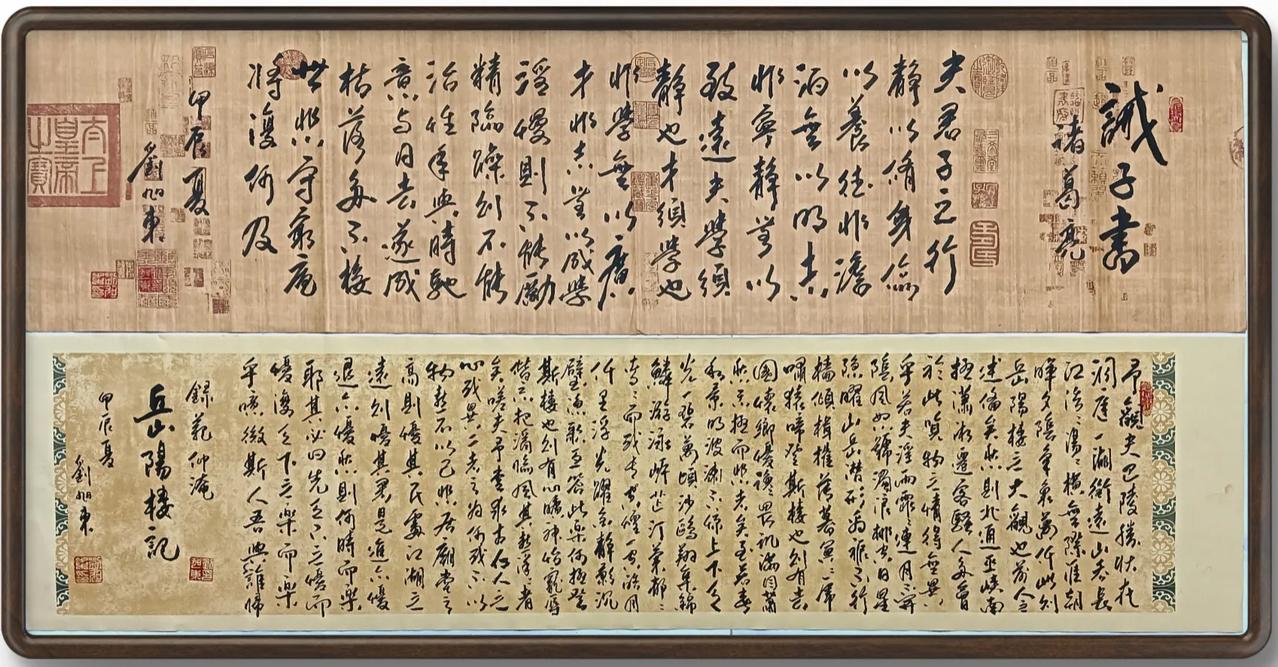 誡子書
諸葛亮
夫君子之行
靜以脩身儉
以養德非澹
泊無以明志
非寧靜無以
致遠夫學須
靜也才須學也
非學無以廣
才非志無以成學
淫慢則不能勵
精險躁則不能
治性年與時馳
意與日去遂成
枯落多不接
世悲守窮廬
將復何及
甲辰夏
劉旭東
太上皇帝之寶
予觀夫巴陵勝狀在
洞庭一湖銜遠山吞長
江浩〻湯〻橫無際涯朝
暉夕陰氣象萬千此則
岳陽樓之大觀也前人之
述備矣然則北通巫峽南
極瀟湘遷客騷人多會
於此覽物之情得無異
乎若夫淫雨霏〻連月不開
陰風怒號濁浪排空日星
隱曜山岳潛形商旅不行
檣傾楫摧薄暮冥〻虎
嘯猿啼登斯樓也則有去
國懷鄉憂讒畏譏滿目蕭
然感極而悲者矣至若春
和景明波瀾不驚上下天
光一碧萬頃沙鷗翔集錦
鱗游泳岸芷汀蘭郁〻
青〻而或長煙一空皓月
千里浮光躍金靜影沉
璧漁歌互答此樂何極登
斯樓也則有心曠神怡寵辱
偕忘把酒臨風其喜洋〻者
矣嗟夫予嘗求古仁人之
心或異二者之為何哉不以
物喜不以己悲居廟堂之
高則憂其民處江湖之
遠則憂其君是進亦憂
退亦憂然則何時而樂
耶其必曰先天下之憂而
憂後天下之樂而樂
乎噫微斯人吾與誰歸
錄范仲淹
岳陽樓記
甲辰夏
劉旭東